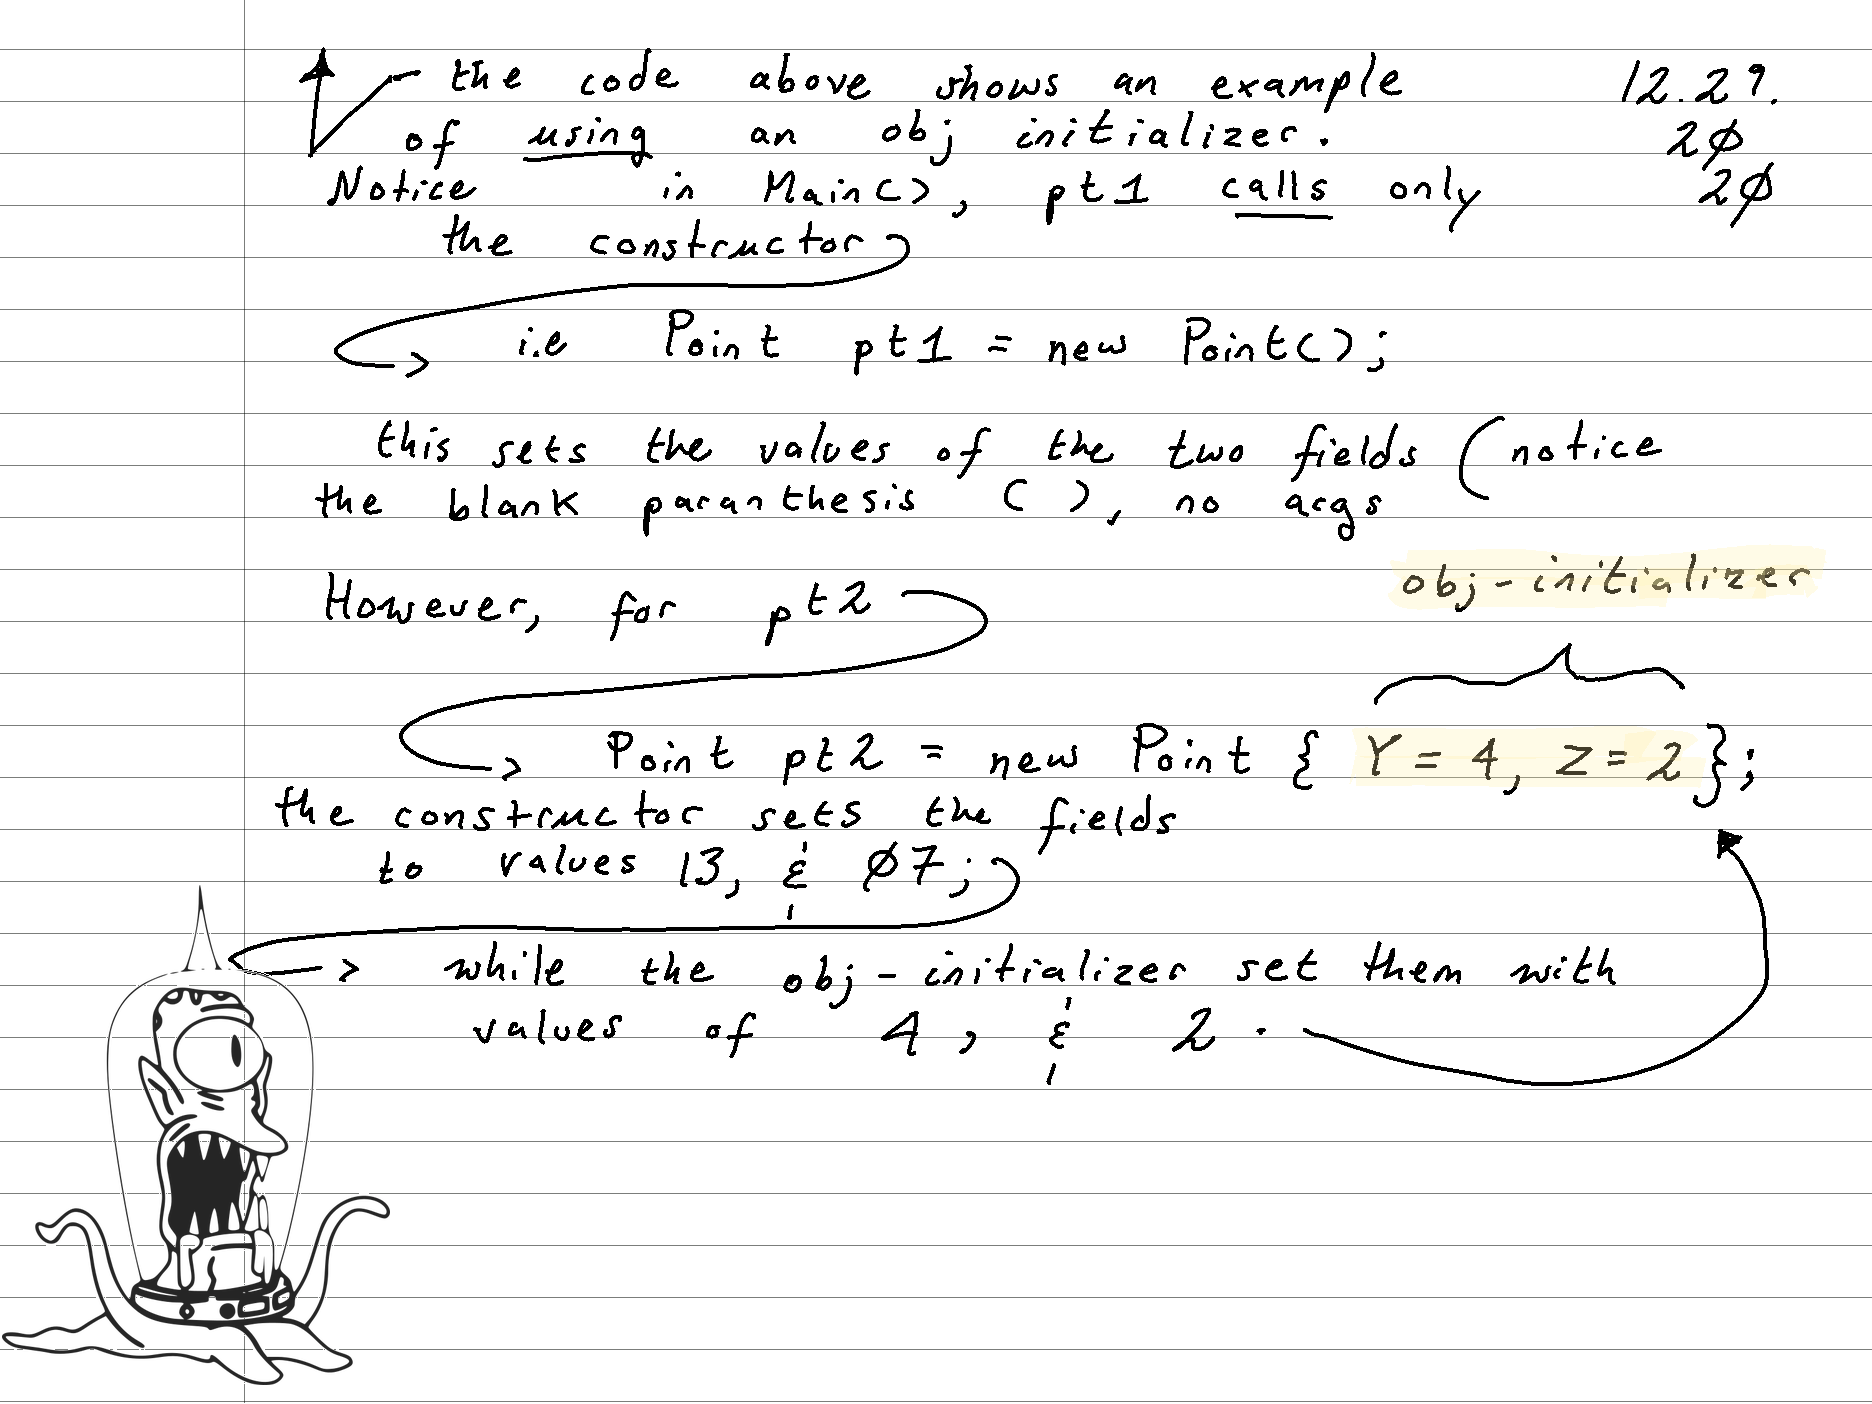 the code above shows an example
12.29.
of using an obj initializer.
2Ø
Notice in Main(), pt1 calls only
2Ø
the constructor
i.e Point pt1 = new Point();
this sets the values of the two fields (notice
the blank paranthesis ( ), no args
obj-initializer
However, for pt2
Point pt2 = new Point { Y = 4, Z = 2 };
the constructor sets the fields
to values 13, & Ø7;
while the obj-initializer set them with
values of 4, & 2.